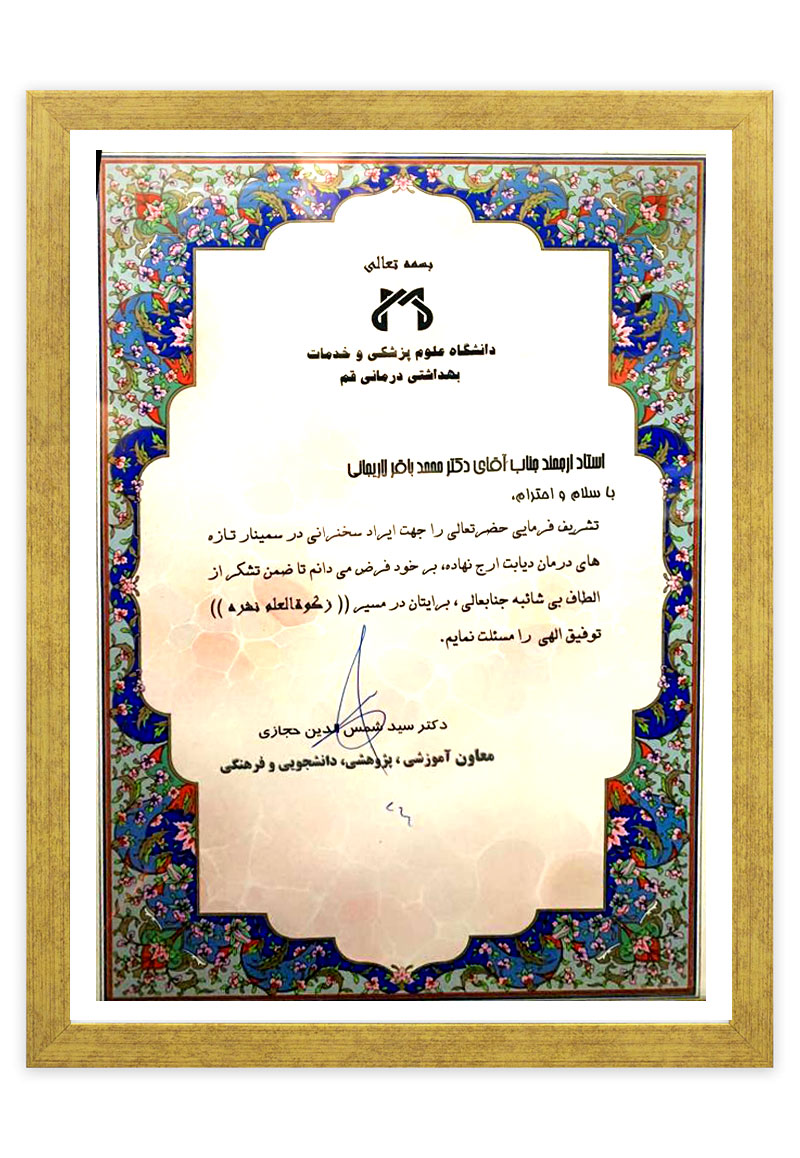 بسمه تعالی
دانشگاه علوم پزشکی و خدمات
بهداشتی درمانی قم
استاد ارجمند جناب آقای دکتر محمد باقر لاریجانی
با سلام و احترام،
تشریف فرمایی حضرتعالی را جهت ایراد سخنرانی در سمینار تازه
های درمان دیابت ارج نهاده، بر خود فرض می دانم تا ضمن تشکر از
الطاف بی شائبه جنابعالی ، برایتان در مسیر (( زکوةالعلم نشره ))
توفیق الهی را مسئلت نمایم.
دکتر سید شمس الدین حجازی
معاون آموزشی ، پژوهشی، دانشجویی و فرهنگی